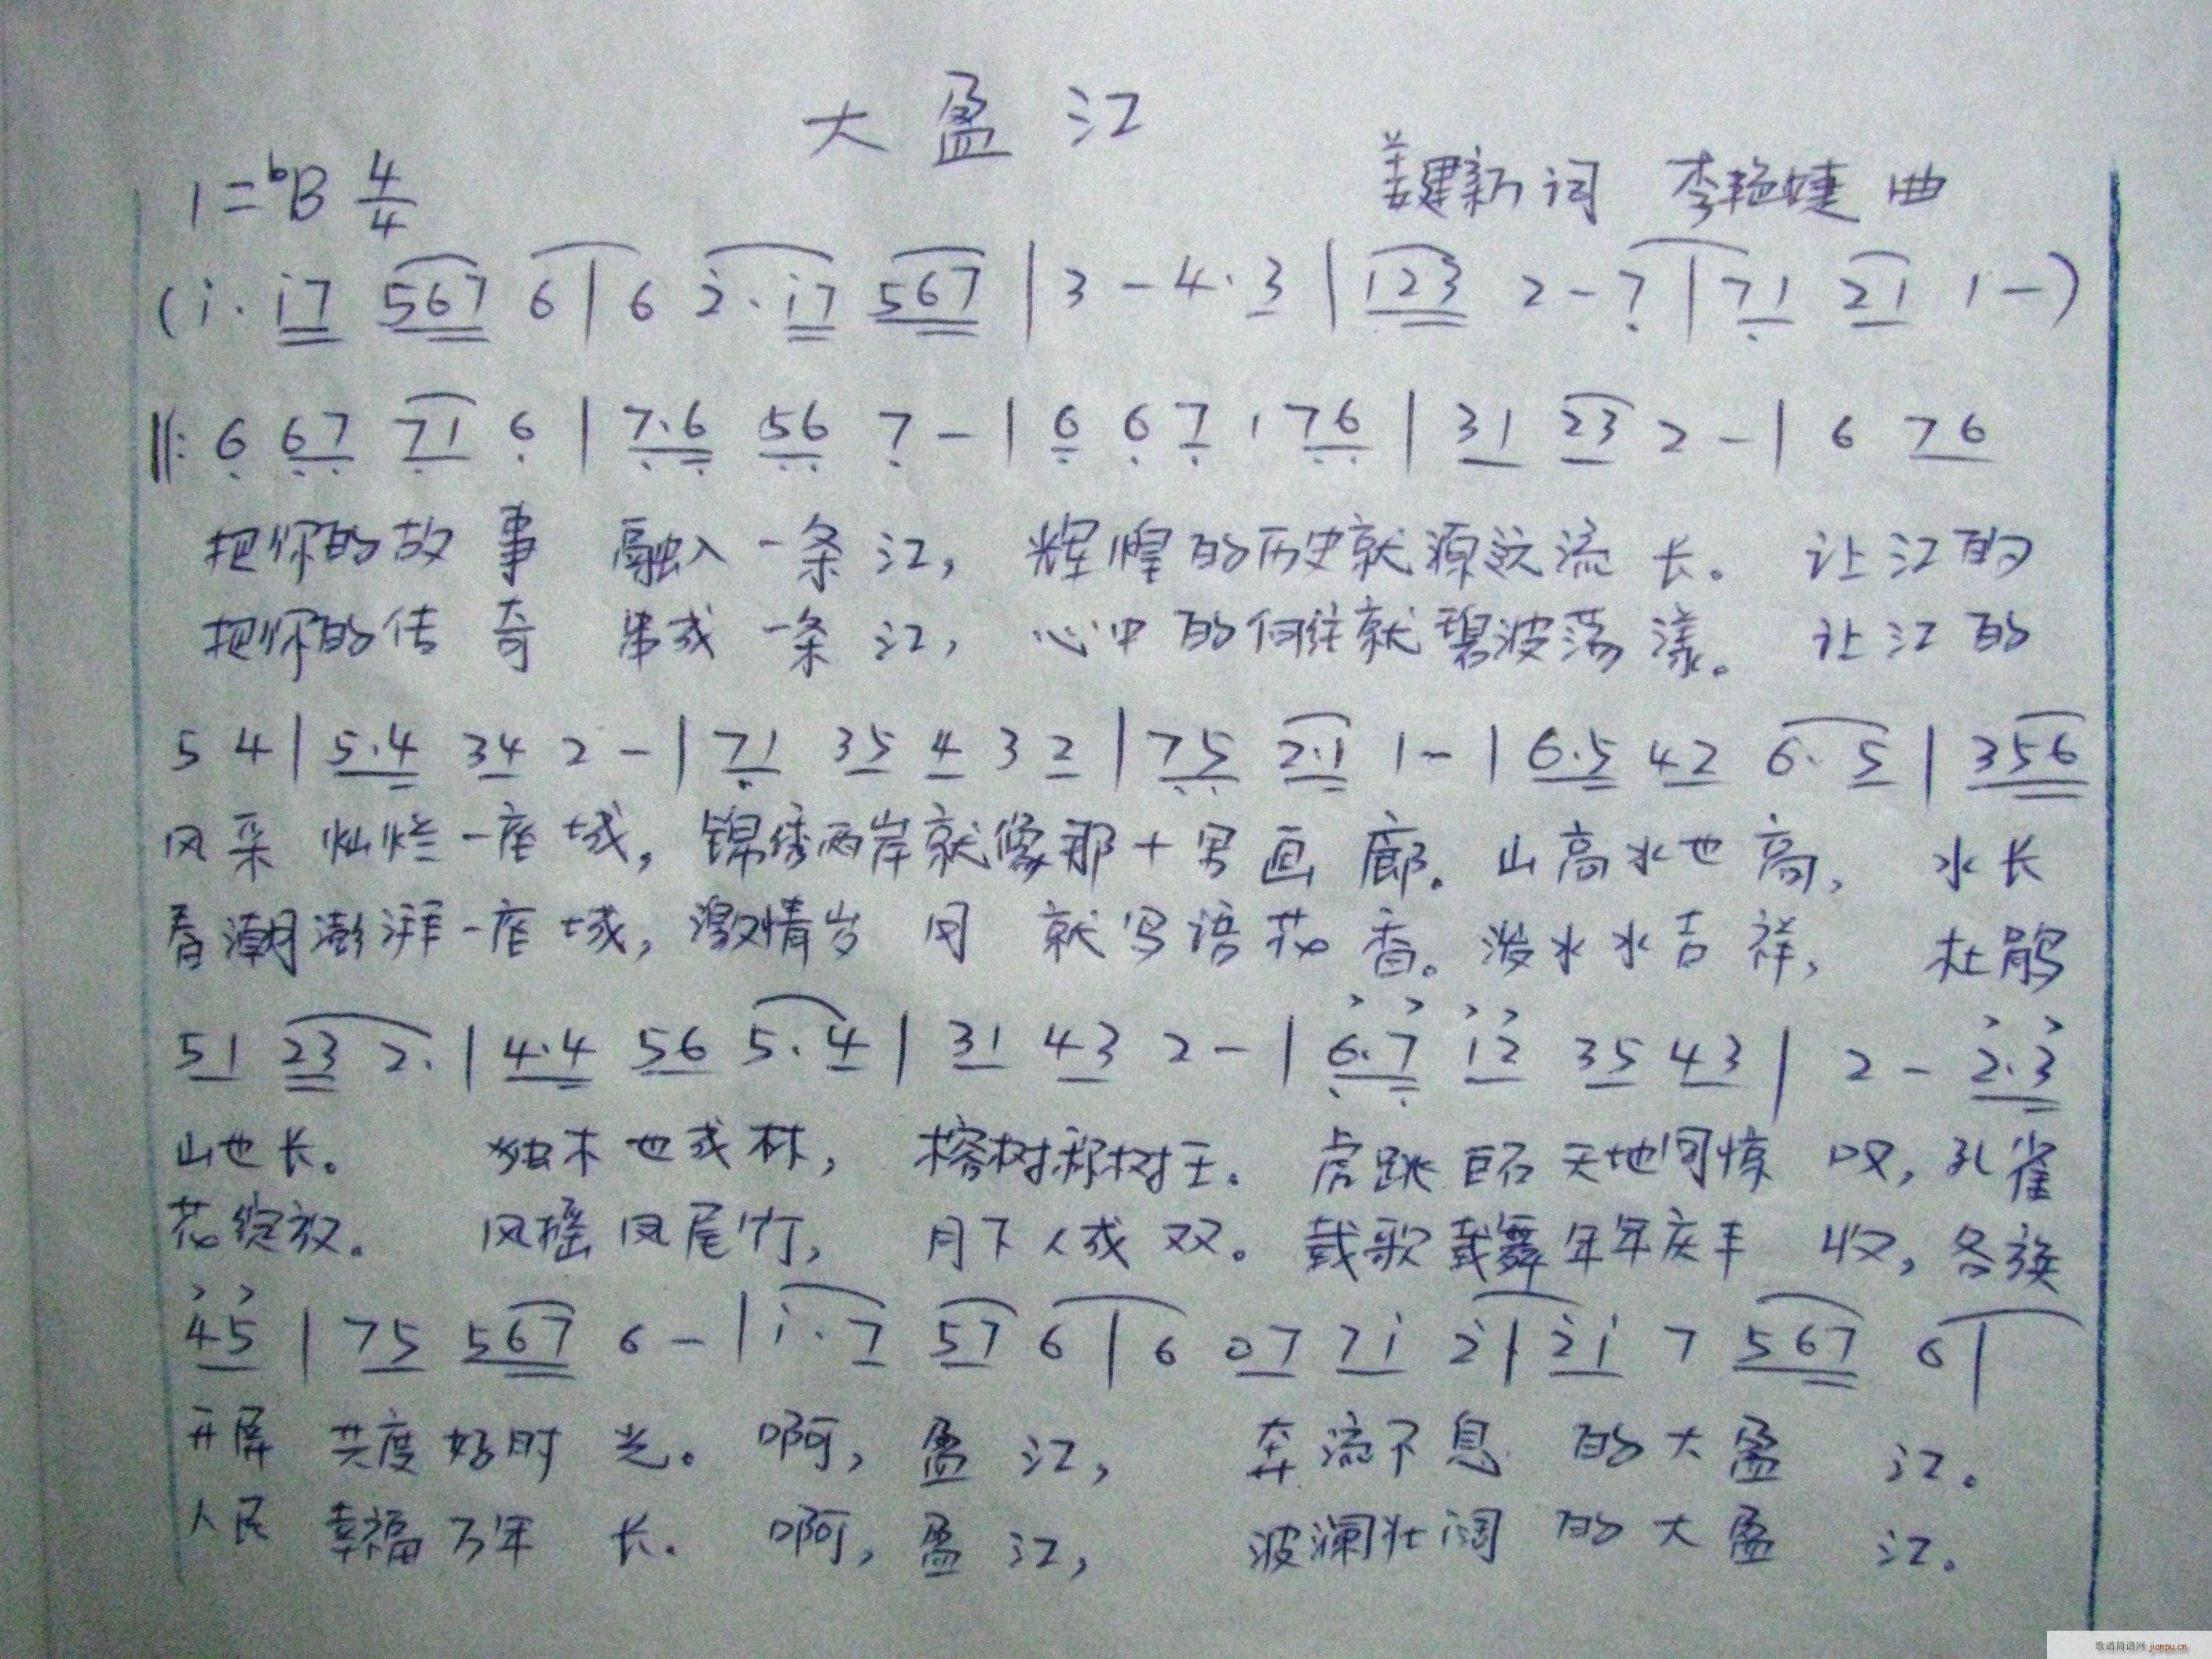 大盈江
1=ᵇB 4/4
姜建新词 李艳婕曲
(i· i7 567 6 | 6 2· i7 567 | 3 - 4·3 | 123 2 - 7 | 71 21 1 -)
‖: 6 67 71 6 | 7·6 56 7 - | 6 6 7 1 76 | 31 23 2 - | 6 76
把你的故事 融入一条江, 辉煌的历史就源远流长。 让江的
把你的传奇 串成一条江, 心中的向往就碧波荡漾。 让江的
5 4 | 5·4 34 2 - | 71 35 4 3 2 | 75 2·1 1 - | 6·5 42 6· 5 | 356
风采 灿烂一座城, 锦绣两岸就像那十里画廊。 山高水也高, 水长
春潮澎湃一座城, 激情岁月 就鸟语花香。 泼水水吉祥, 杜鹃
51 23 2· | 4·4 56 5·4 | 31 43 2 - | 6·7 12 35 43 | 2 - 2·3
山也长。 独木也成林, 榕树称树王。 虎跳巨石天地间惊叹, 孔雀
花绽放。 风摇凤尾竹, 月下人成双。 载歌载舞年年庆丰收, 各族
45 | 75 567 6 - | i·7 57 6 | 6 07 7i 2 | 2i 7 567 6 |
开屏 共度好时光。 啊, 盈江, 奔流不息 的大盈江。
人民 幸福万年长. 啊, 盈江, 波澜壮阔 的大盈江.
歌谱简谱网 jianpu.cn